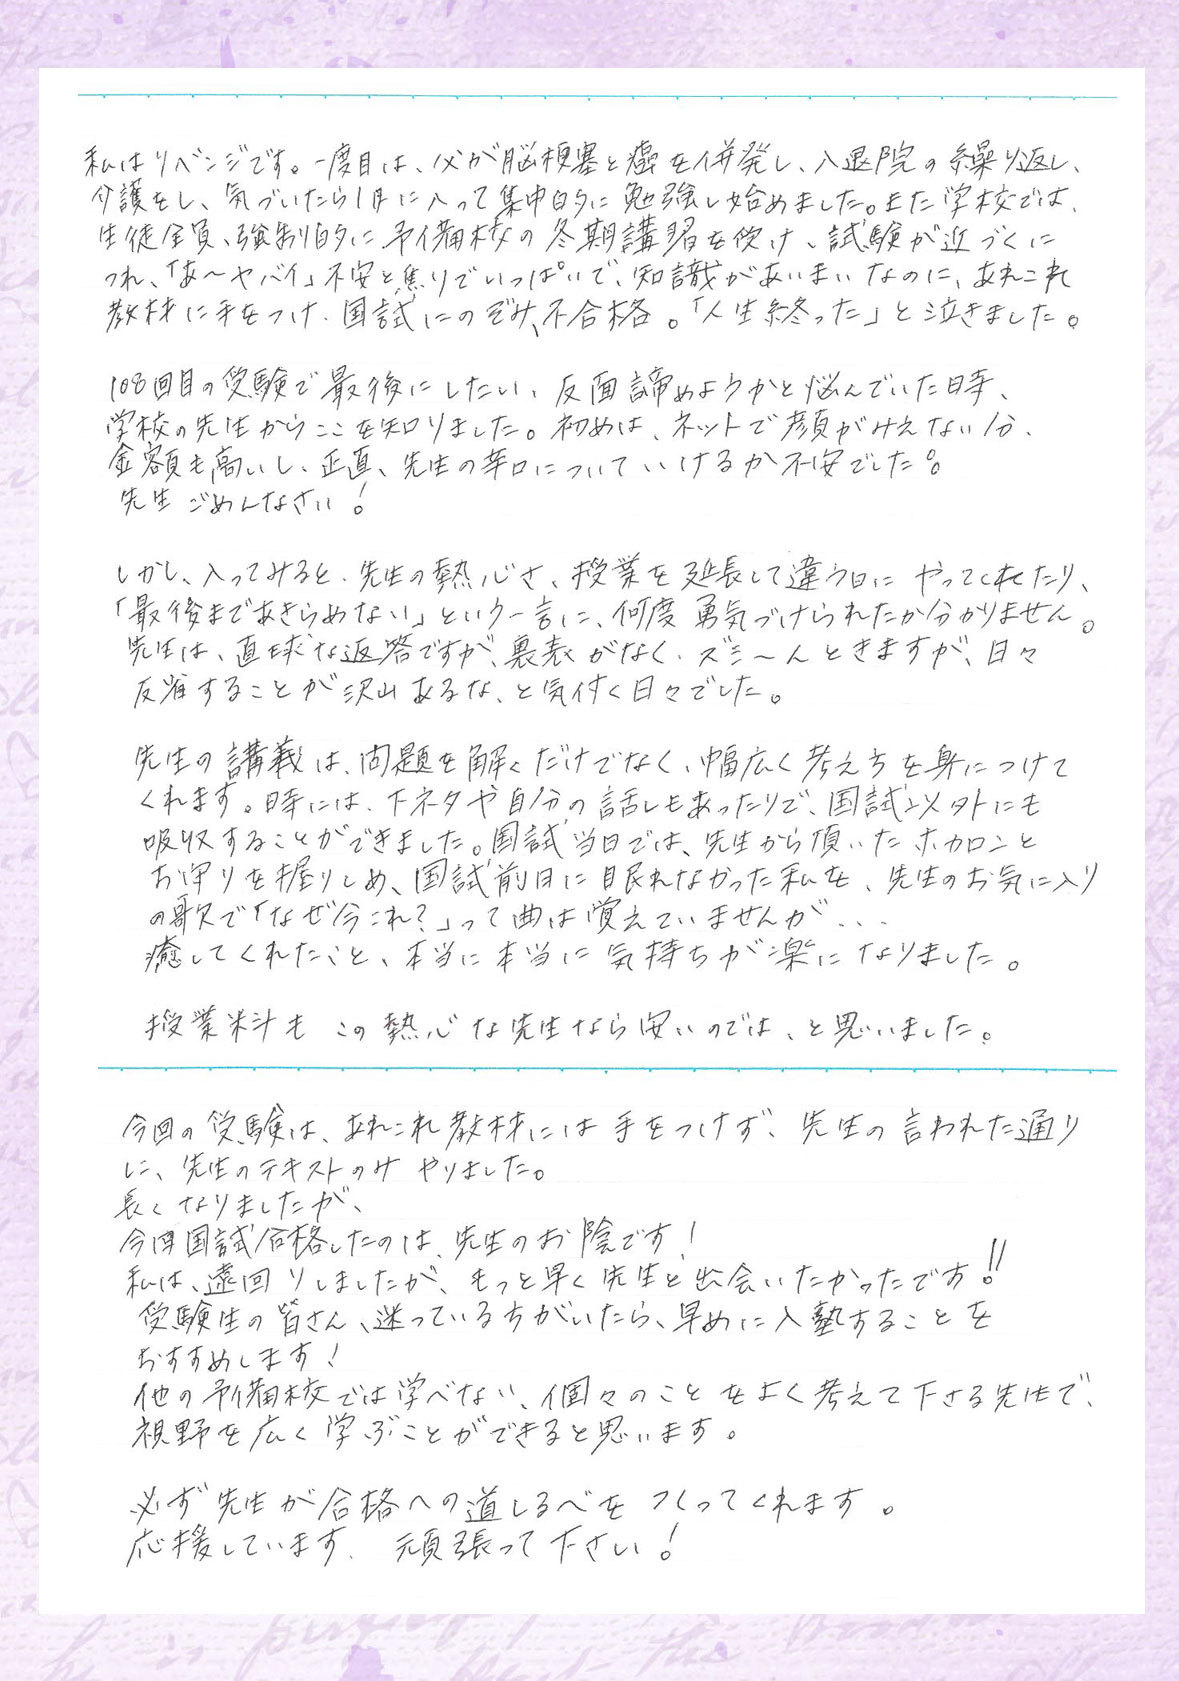 私はリベンジです。一度目は、父が脳梗塞と癌を併発し、入退院の繰り返し、
介護をし、気づいたら1月に入って集中的に勉強し始めました。また学校では、
生徒全員、強制的に予備校の冬期講習を受け、試験が近づくに
つれ、「あ〜ヤバイ」不安と焦りでいっぱいで、知識があいまいなのに、あれこれ
教材に手をつけ、国試にのぞみ、不合格。「人生終った」と泣きました。
108回目の受験で最後にしたい、反面諦めようかと悩んでいた時、
学校の先生からここを知りました。初めは、ネットで顔がみえない分、
金額も高いし、正直、先生の辛口についていけるか不安でした。
先生ごめんなさい!
しかし、入ってみると、先生の熱心さ、授業を延長して違う日にやってくれたり、
「最後まであきらめない」という一言に、何度勇気づけられたか分かりません。
先生は、直球な返答ですが、裏表がなく、ズシ〜んときますが、日々
反省することが沢山あるな、と気付く日々でした。
先生の講義は、問題を解くだけでなく、幅広く考え方を身につけて
くれます。時には、下ネタや自分の話しもあったりで、国試以外にも
吸収することができました。国試当日では、先生から頂いたホカロンと
お守りを握りしめ、国試前日に眠れなかった私を、先生のお気に入り
の歌で「なぜ今これ?」って曲は覚えていませんが...
癒してくれたこと、本当に本当に気持ちが楽になりました。
授業料もこの熱心な先生なら安いのでは、と思いました。
今回の受験は、あれこれ教材には手をつけず、先生の言われた通り
に、先生のテキストのみやりました。
長くなりましたが、
今回国試合格したのは、先生のお陰です!
私は、遠回りしましたが、もっと早く先生と出会いたかったです!!
受験生の皆さん、迷っている方がいたら、早めに入塾することを
おすすめします!
他の予備校では学べない、個々のことをよく考えて下さる先生で、
視野を広く学ぶことができると思います。
必ず先生が合格への道しるべをつくってくれます。
応援しています。頑張って下さい!